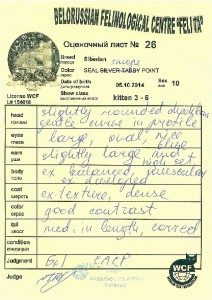 BELORUSSIAN FELINOLOGICAL CENTRE "FELITA"
Оценочный лист № 26
Breed порода Siberian
Color окрас SEAL SILVER TABBY POINT
Date of birth дата рождения 05.10.2014
Sex пол 1.0
License WCF
LB 154018
Show class
выставочный класс kitten 3 - 6
head голова slightly rounded
gentle curve in profile
eyes глаза large, oval, nice blue
ears уши slightly large and
body тело ex balanced, muscular
ex developed
coat шерсть ex texture, dense
color окрас good contrast
tail хвост med. in length, correct
condition кондиция
Judgment Ex 1
Judge судья
WCF